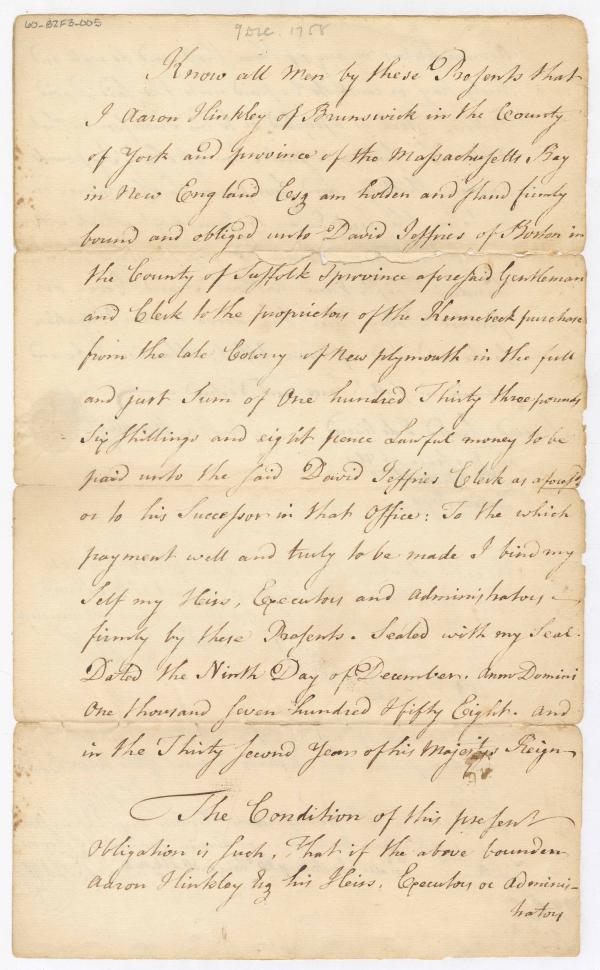 60-82F3-005
9 Dec. 1758
Know all Men by these Presents that
I Aaron Hinkley of Brunswick in the County
of York and province of the Massachusetts Bay
in New England Esq am holden and stand firmly
bound and obliged unto David Jeffries of Boston in
the County of Suffolk & province aforesaid Gentleman
and Clerk to the proprietors of the Kennebeck purchase
from the late Colony of New plymouth in the full
and just Sum of One hundred Thirty three pounds
Six shillings and eight pence Lawful money to be
paid unto the said David Jeffries Clerk as aforesd
or to his Successor in that Office: To the which
payment well and truly to be made I bind my
Self my Heirs, Executors and Administrators
firmly by these Presents. Sealed with my Seal.
Dated the Ninth Day of December. Anno Domini
One thousand seven hundred & fifty Eight. And
in the Thirty second Year of his Majestys Reign
The Condition of this present
Obligation is such, That if the above bounden
Aaron Hinkley Esq his Heirs, Executors or Adminis-
trators